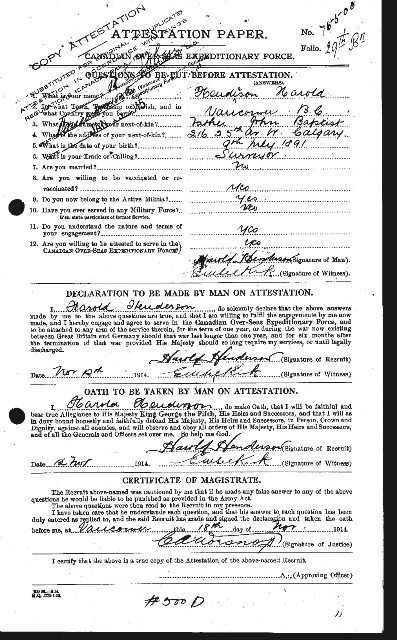 COPY ATTESTATION
ATTESTATION PAPER.
No.
Folio.
CANADIAN OVER-SEAS EXPEDITIONARY FORCE.
QUESTIONS TO BE PUT BEFORE ATTESTATION.
(ANSWERS)
1. What is your name? Henderson Harold
2. In what Town, Township or Parish, and in
what Country were you born? Vancouver B.C.
3. What is the name of your next-of-kin? Father John Baptist
4. What is the address of your next-of-kin? 216 25th Av W. Calgary
5. What is the date of your birth? 9th July 1891
6. What is your Trade or Calling? Surveyor
7. Are you married? No
8. Are you willing to be vaccinated or re-
vaccinated? Yes
9. Do you now belong to the Active Militia? Yes
10. Have you ever served in any Military Force?
If so, state particulars of former Service.
11. Do you understand the nature and terms of
your engagement? Yes
12. Are you willing to be attested to serve in the
CANADIAN OVER-SEAS EXPEDITIONARY FORCE? Yes
Harold Henderson (Signature of Man).
(Signature of Witness).
DECLARATION TO BE MADE BY MAN ON ATTESTATION.
I, Harold Henderson, do solemnly declare that the above answers
made by me to the above questions are true, and that I am willing to fulfil the engagements by me now
made, and I hereby engage and agree to serve in the Canadian Over-Seas Expeditionary Force, and to
be attached to any arm of the service therein, for the term of one year, or during the war now existing
between Great Britain and Germany should that war last longer than one year, and for six months after
the termination of that war provided His Majesty should so long require my services, or until legally
discharged.
Harold Henderson (Signature of Recruit)
Date Nov 1914. (Signature of Witness)
OATH TO BE TAKEN BY MAN ON ATTESTATION.
I, Harold Henderson, do make Oath, that I will be faithful and
bear true Allegiance to His Majesty King George the Fifth, His Heirs and Successors, and that I will as
in duty bound honestly and faithfully defend His Majesty, His Heirs and Successors, in Person, Crown and
Dignity, against all enemies, and will observe and obey all orders of His Majesty, His Heirs and Successors,
and of all the Generals and Officers set over me. So help me God.
Harold Henderson (Signature of Recruit)
Date 12 Nov 1914. (Signature of Witness)
CERTIFICATE OF MAGISTRATE.
The Recruit above-named was cautioned by me that if he made any false answer to any of the above
questions he would be liable to be punished as provided in the Army Act.
The above questions were then read to the Recruit in my presence.
I have taken care that he understands each question, and that his answer to each question has been
duly entered as replied to, and the said Recruit has made and signed the declaration and taken the oath
before me, at Vancouver this 18th day of Nov. 1914.
(Signature of Justice)
I certify that the above is a true copy of the Attestation of the above-named Recruit.
(Approving Officer)
#500 D